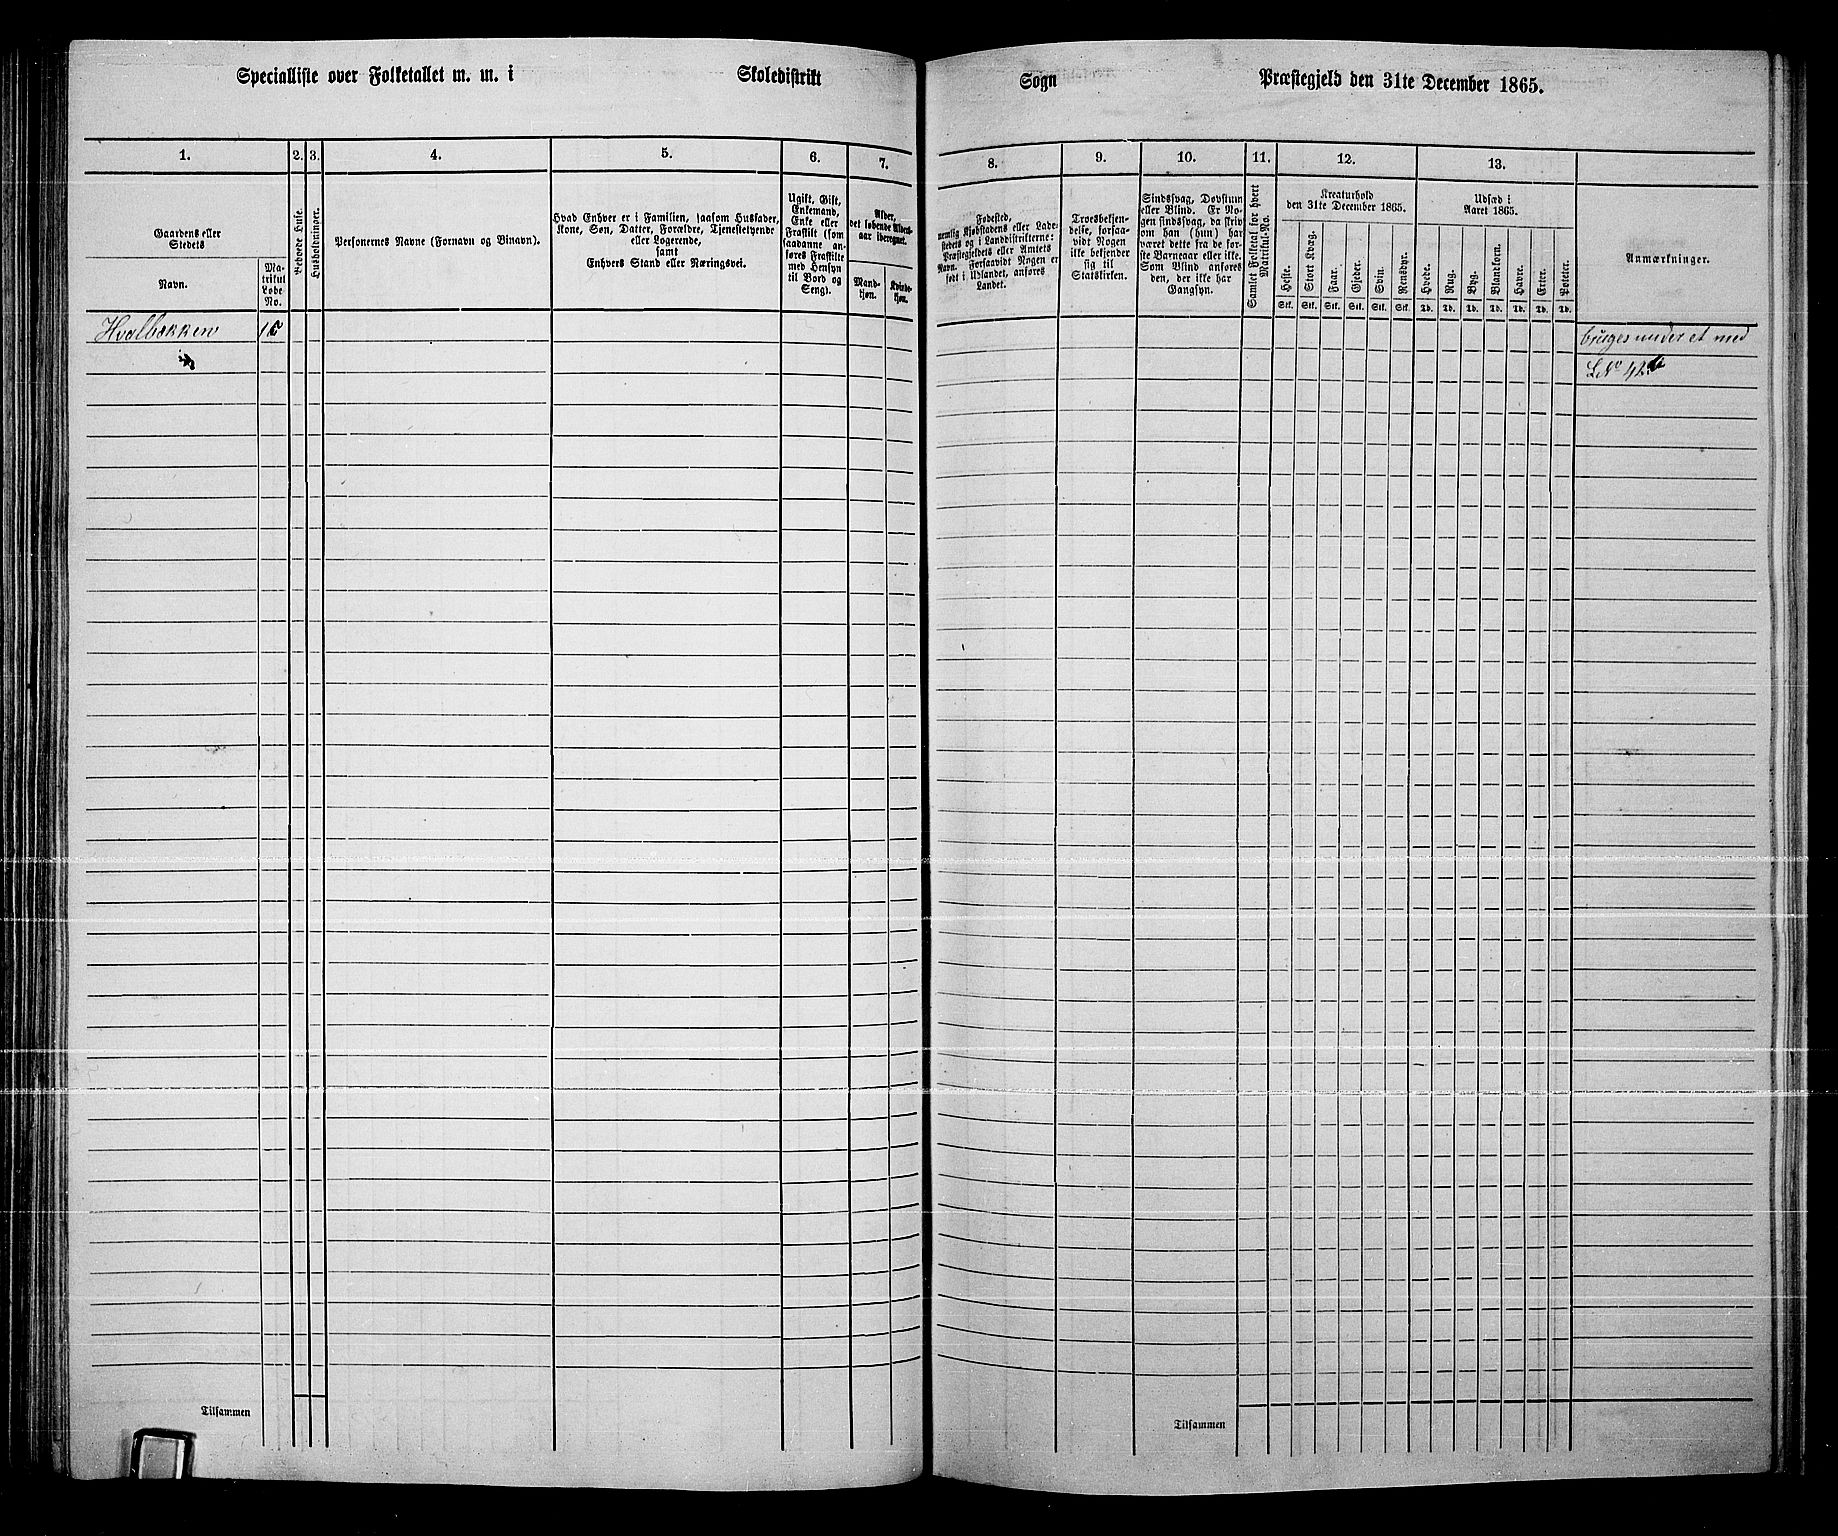 Specialliste over Folketallet m. m. i Skoledistrikt Sogn Præstegjeld den 31te December 1865.
1. 2. 3. 4. 5. 6. 7. 8. 9. 10. 11. 12. 13.
Gaardens eller
Stedets
Navn.
Ma-
trikul
Løbe
No.
Beboede Huse.
Husholdninger.
Personernes Navne (Fornavn og Binavn).
Hvad Enhver er i Familien, saasom Husfader,
Kone, Søn, Datter, Forældre, Tjenestetyende
eller Logerende,
samt
Enhvers Stand eller Næringsvei.
Ugift, Gift,
Enkemand,
Enke eller
Fraskilt (som
saadanne an-
føres Fraskilte
med Hensyn
til Bord og
Seng).
Alder,
det løbende Alders-
aar iberegnet.
Mand-
kjøn.
Kvinde-
kjøn.
Fødested,
nemlig Kjøbstadens eller Lade-
stedets og i Landdistrikterne:
Præstegjeldets eller Amtets
Navn. Forsaavidt Nogen er
født i Udlandet, anføres
Landet.
Troesbekjen-
delse, forsaa-
vidt Nogen
ikke bekjender
sig til
Statskirken.
Sindssvag, Døvstum
eller Blind. Er No-
gen sindssvag, da skriv
om han (hun) har
været dette fra de før-
ste Barneaar eller ikke.
Som Blind anføres
den, der ikke har
Gangsyn.
Samlet Folketal for hvert
Matrikul-No.
Kreaturhold
den 31te December 1865.
Heste.
Stort Kvæg.
Faar.
Gjeder.
Svin.
Rensdyr.
Stk. Stk. Stk. Stk. Stk. Stk.
Udsæd i
Aaret 1865.
Hvede.
Rug.
Byg.
Blandkorn.
Havre.
Erter.
Poteter.
Td. Td. Td. Td. Td. Td. Td.
Anmærkninger.
Hvalbækken
bruges under et med
L No 42
Tilsammen Tilsammen